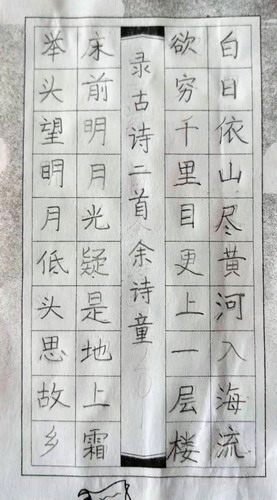 白日依山尽黄河入海流
欲穷千里目更上一层楼
录古诗二首 余诗童
床前明月光疑是地上霜
举头望明月低头思故乡